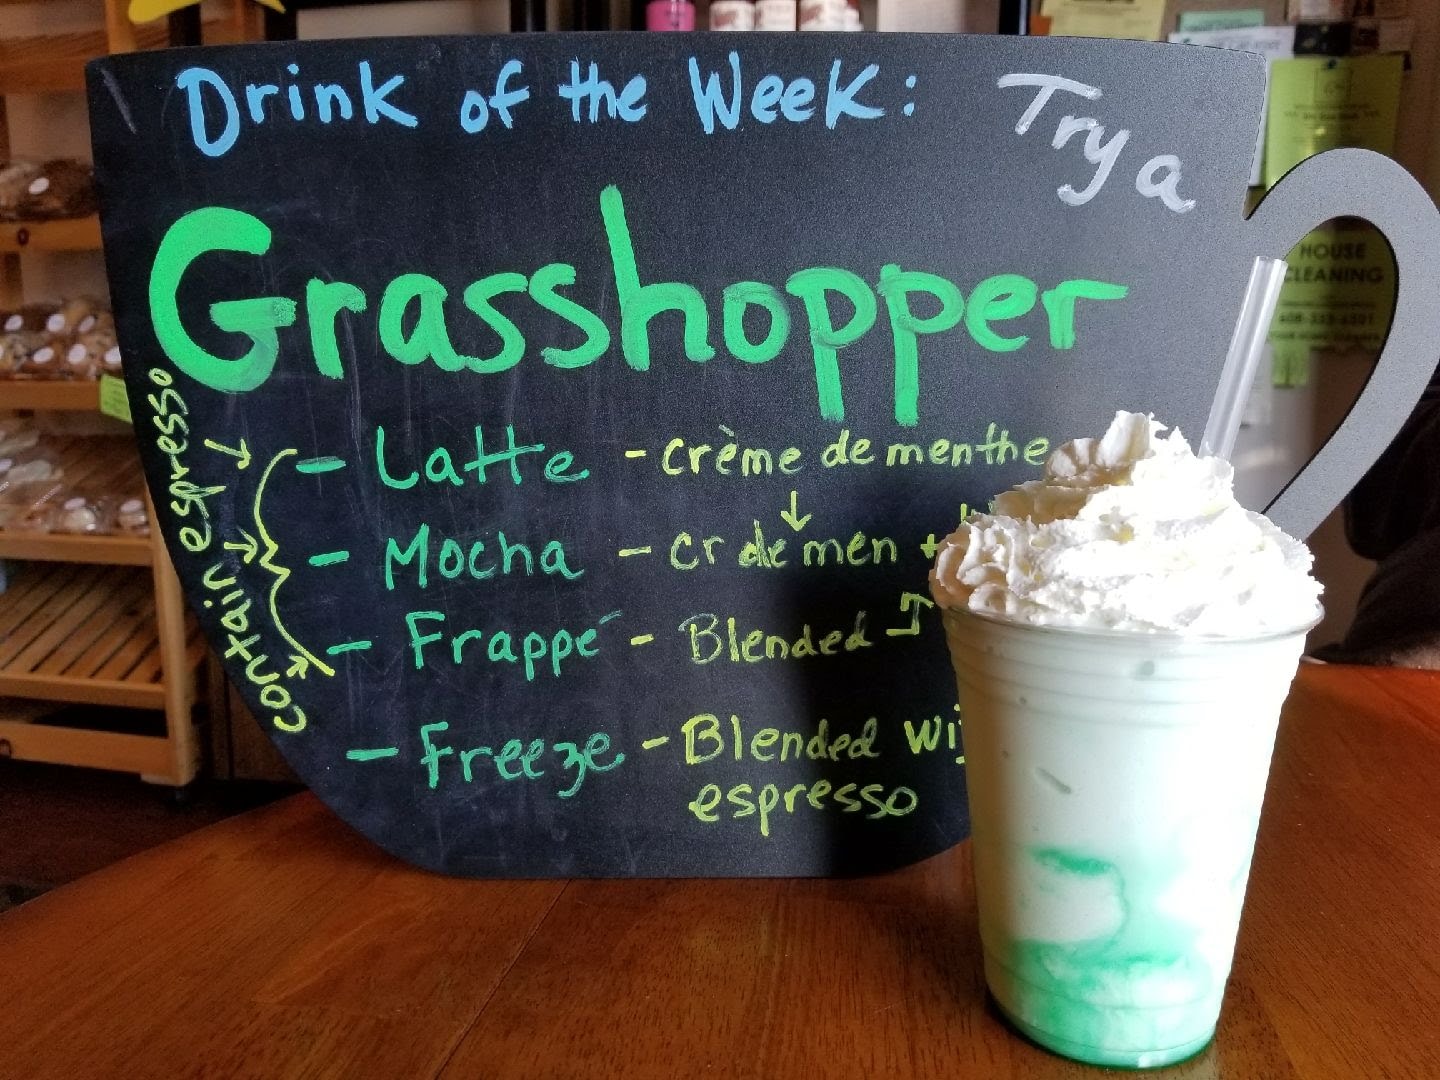 Drink of the Week: Try a
Grasshopper
contain espresso
- Latte - crème de menthe
- Mocha - cr de men +
- Frappé - Blended
- Freeze - Blended
espresso
HOUSE
CLEANING